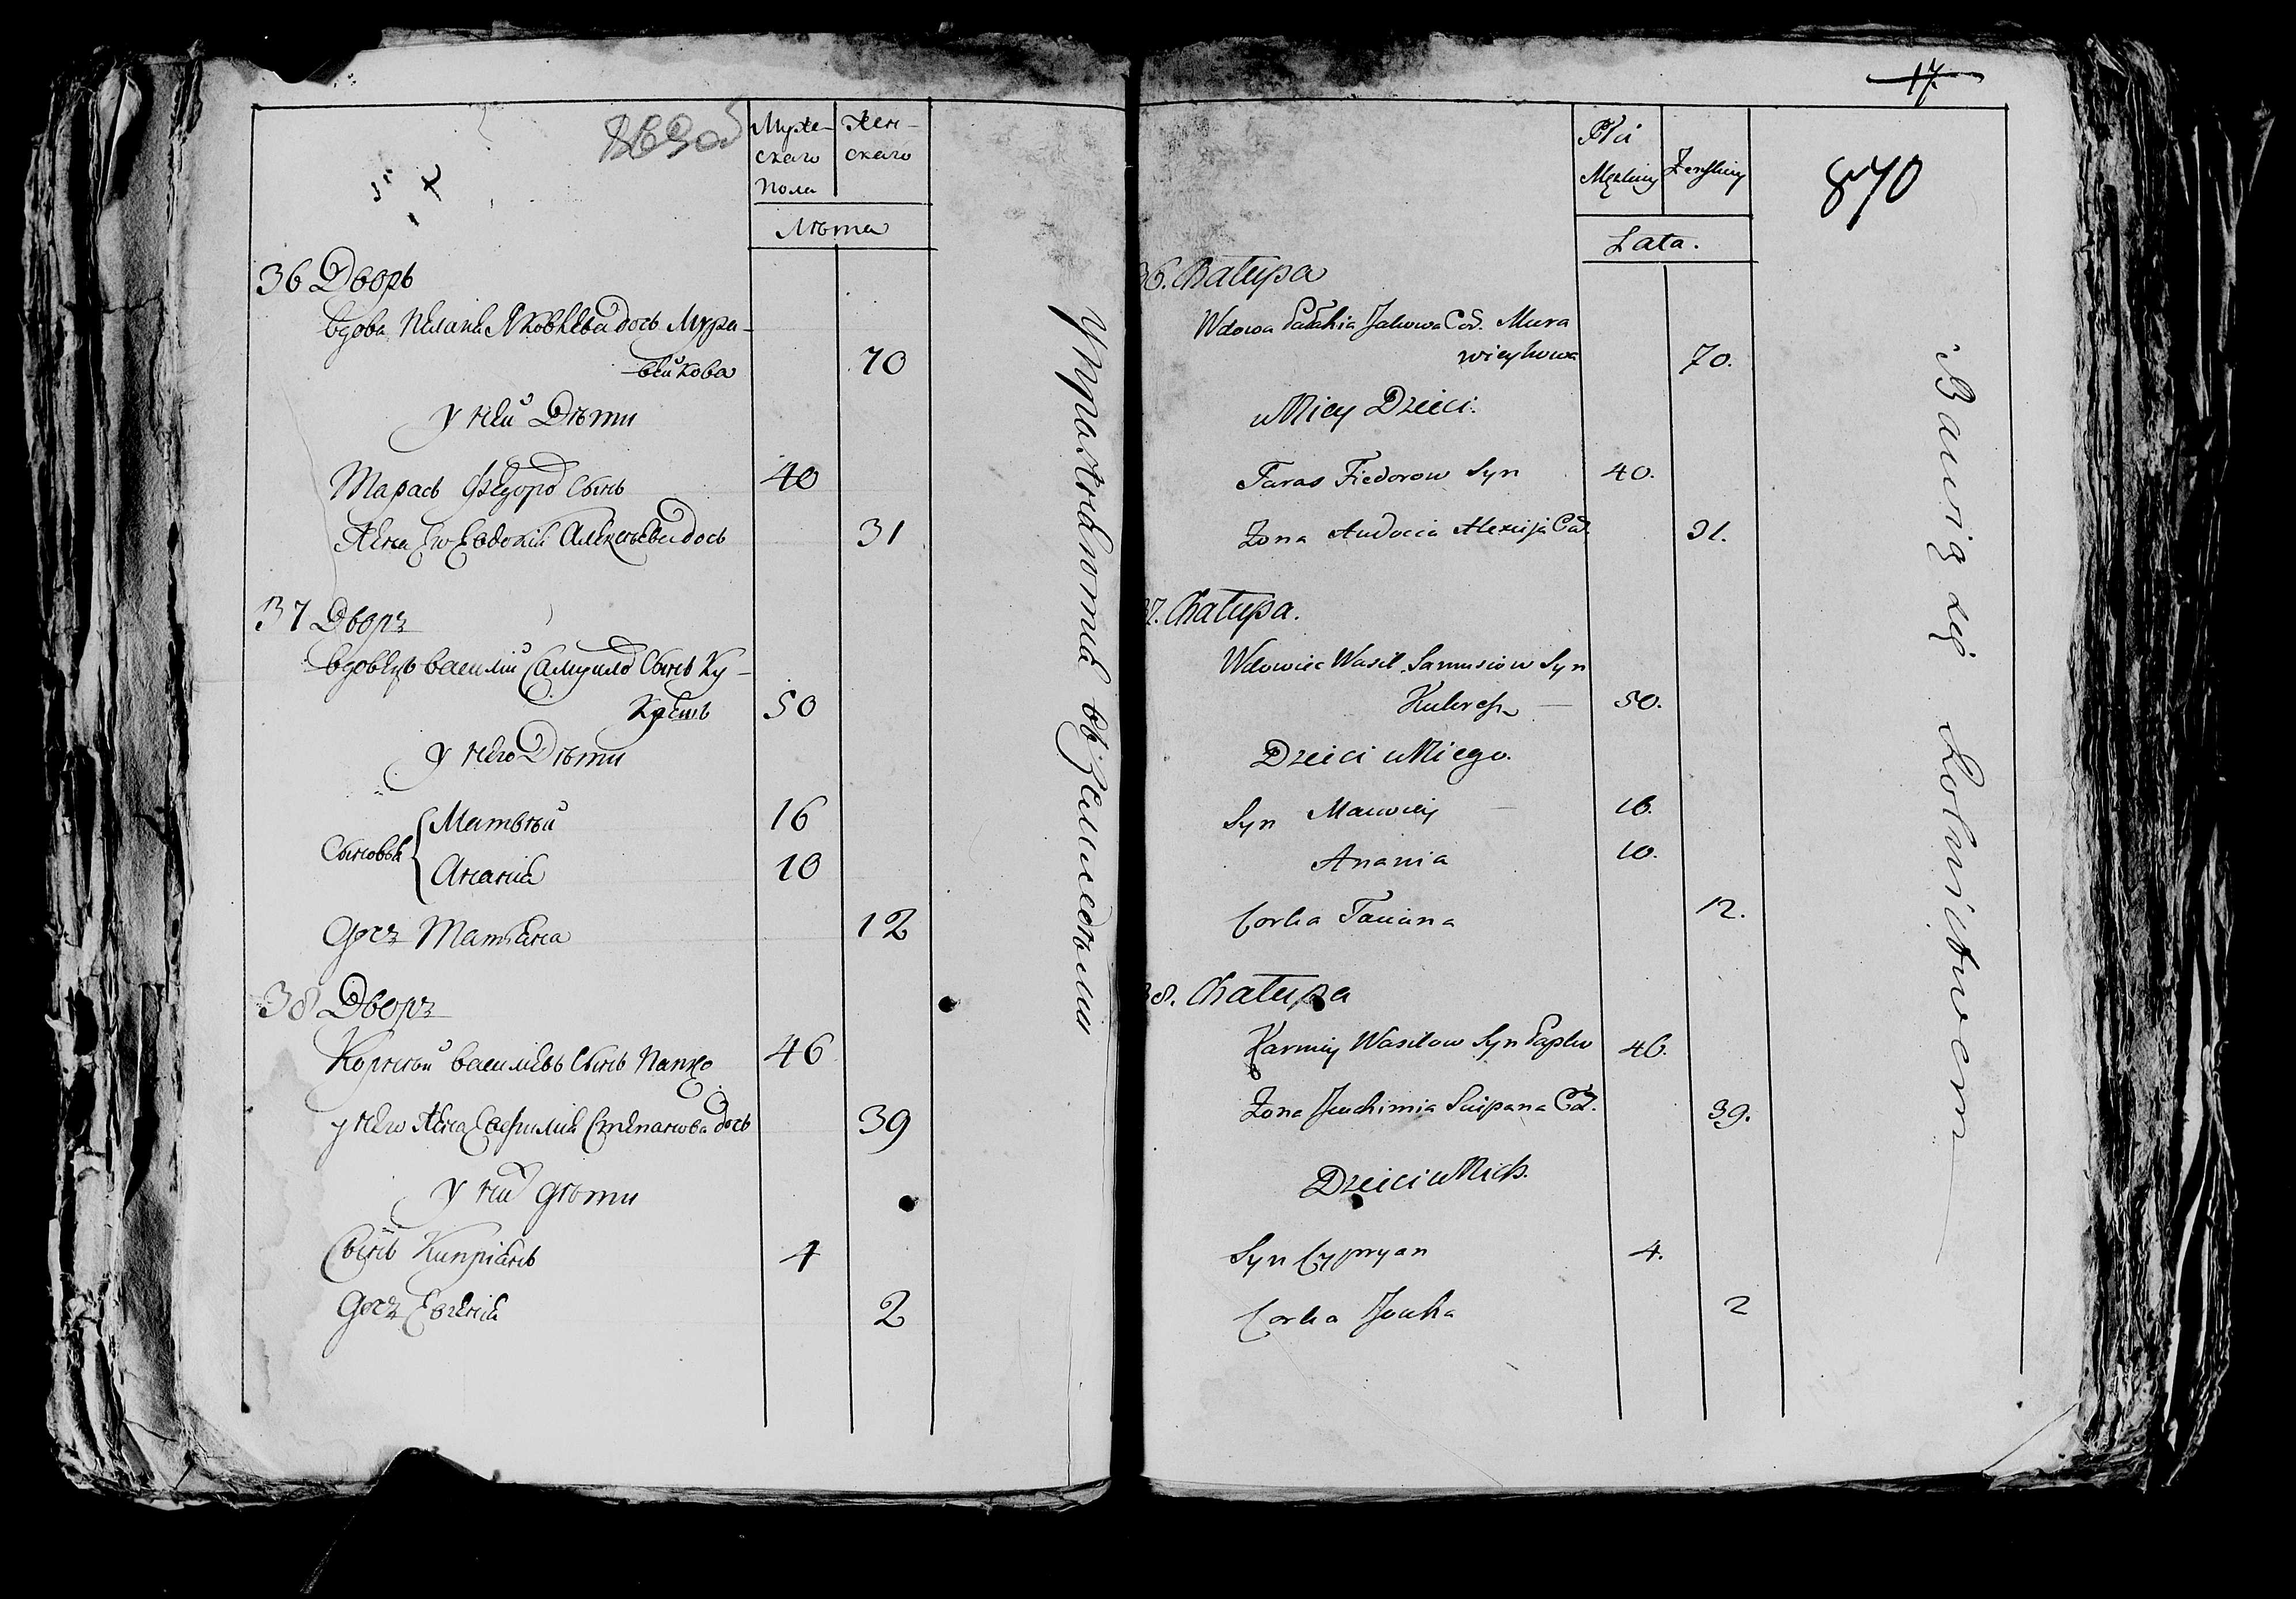 Муже- Жен-
скаго скаго
пола
Лѣта
36 Дворъ
вдова Пелагия Яковлева дочь Мура-
вейкова 70
у ней Дѣти
Тарасъ Федоров Сынъ 40
Жена Его Евдокия Алексѣева дочь 31
37 Дворъ
вдовецъ василий Самуилов Сынъ Ку-
Крешъ 50
у него Дѣти
Сыновья { Матвѣй 16
Анания 10
дочь Татьяна 12
38 Дворъ
Корней василевъ Сынъ Папко 46
у него Жена Евфимия Степанова дочь 39
у них дѣти
Сынъ Киприянъ 4
дочь Евгения 2
Упражняются в земледѣлии
17
870
Płci
Męskiey Żeńskiey
Lata.
36. Chałupa
Wdowa Pałahia Jakowa Cór. Mura
wieykowa 70.
u Niey Dzieci.
Taras Fiedorow Syn 40.
Żona Audocia Alexieja Cór. 31.
37. Chałupa.
Wdowiec Wasil Samusiow Syn
Kukresz 50.
Dzieci u Niego.
Syn Maciwiey 16.
Anania 10.
Corka Taciana 12.
38. Chałupa
Karniey Wasilow Syn Papko 46.
Żona Jeuchimia Sciepana Cór. 39.
Dzieci u Nich.
Syn Cypryan 4.
Corka Jouha 2
Bawią się Rolnictwem